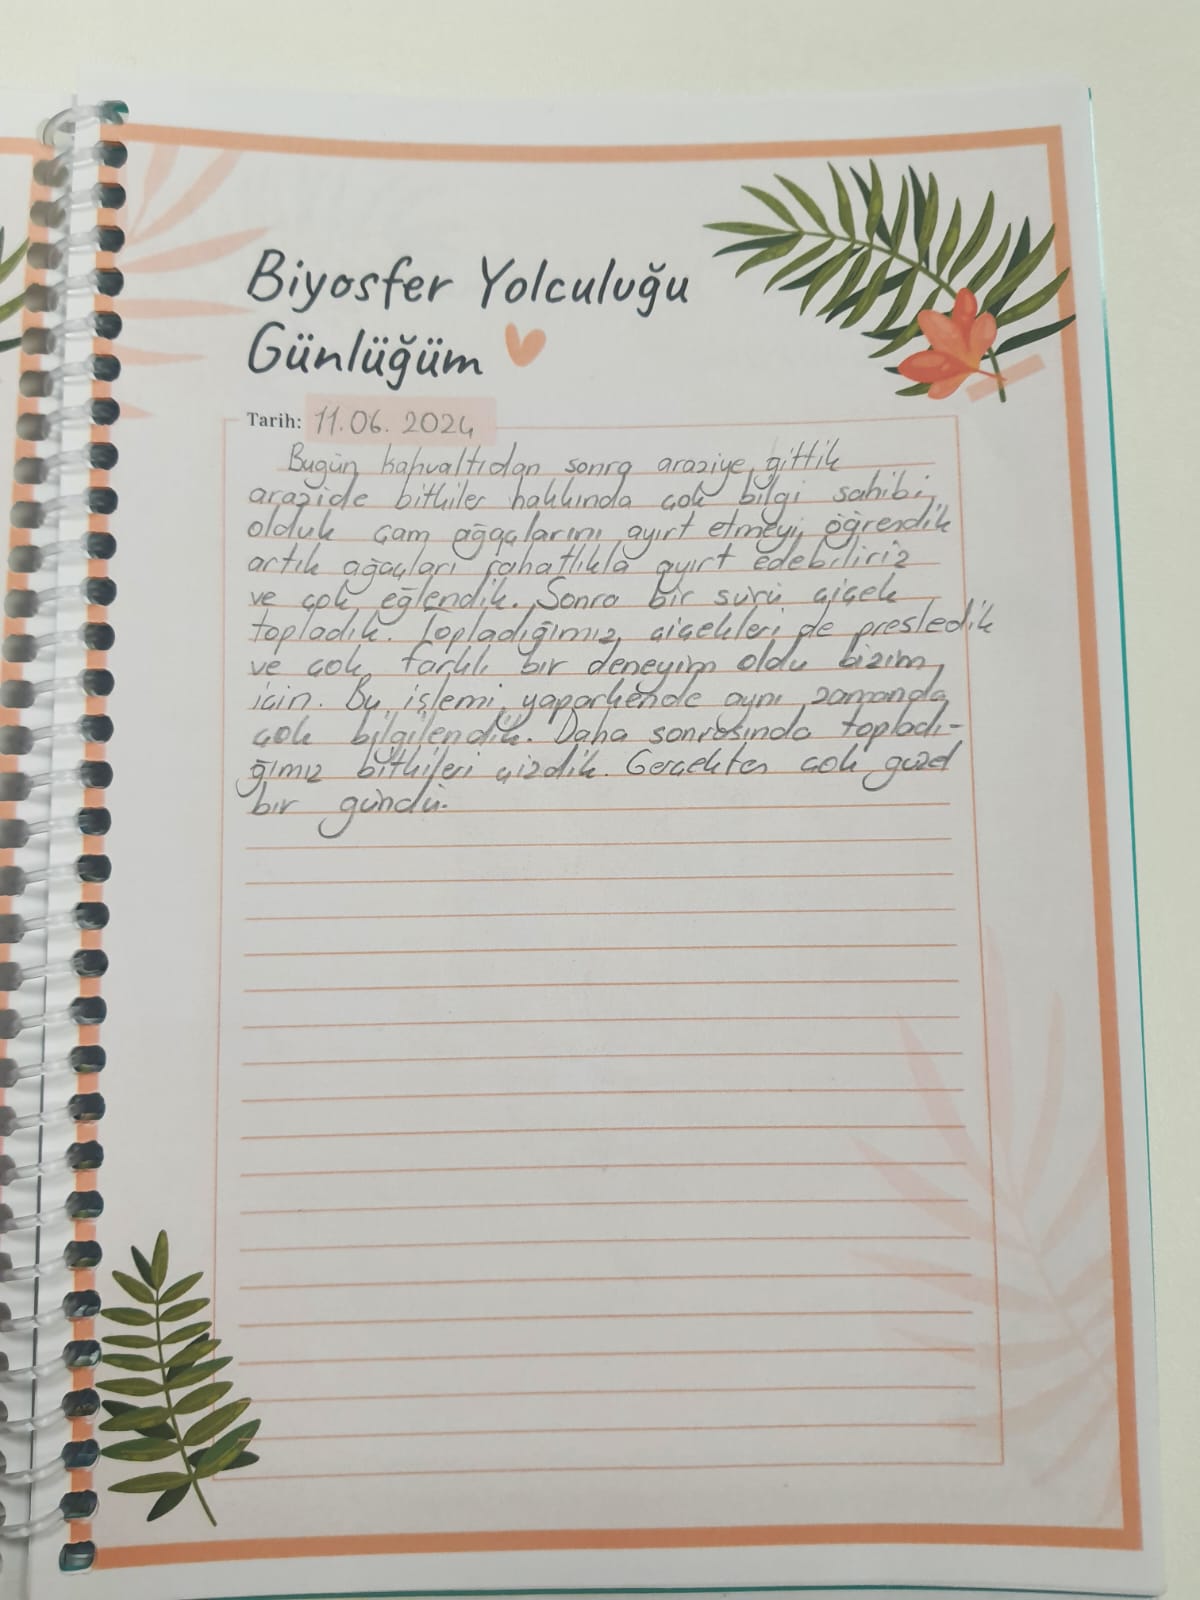 Biyosfer Yolculuğu
Günlüğüm
Tarih: 11.06.2024
Bugün kahvaltıdan sonra araziye gittik
arazide bitkiler hakkında çok bilgi sahibi
olduk çam ağaçlarını ayırt etmeyi öğrendik
artık ağaçları rahatlıkla ayırt edebiliriz
ve çok eğlendik. Sonra bir sürü çiçek
topladık. Topladığımız çiçekleri de presledik
ve çok farklı bir deneyim oldu bizim
için. Bu işlemi yaparkende aynı zamanda
çok bilgilendik. Daha sonrasında topladı-
ğımız bitkileri çizdik. Gerçekten çok güzel
bir gündü.